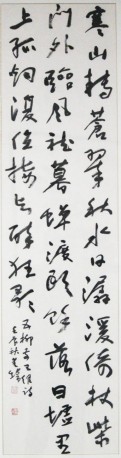 寒山轉蒼翠秋水日潺湲倚杖柴
門外臨風聽暮蟬渡頭餘落日墟里
上孤烟復值接輿醉狂歌
五柳前王維詩